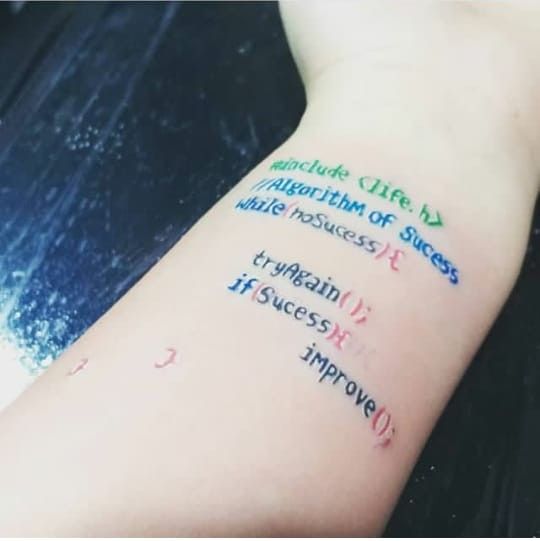 #include <life.h>
//Algorithm of Sucess
while(noSucess){
tryAgain();
if(Sucess){
improve();
}
}